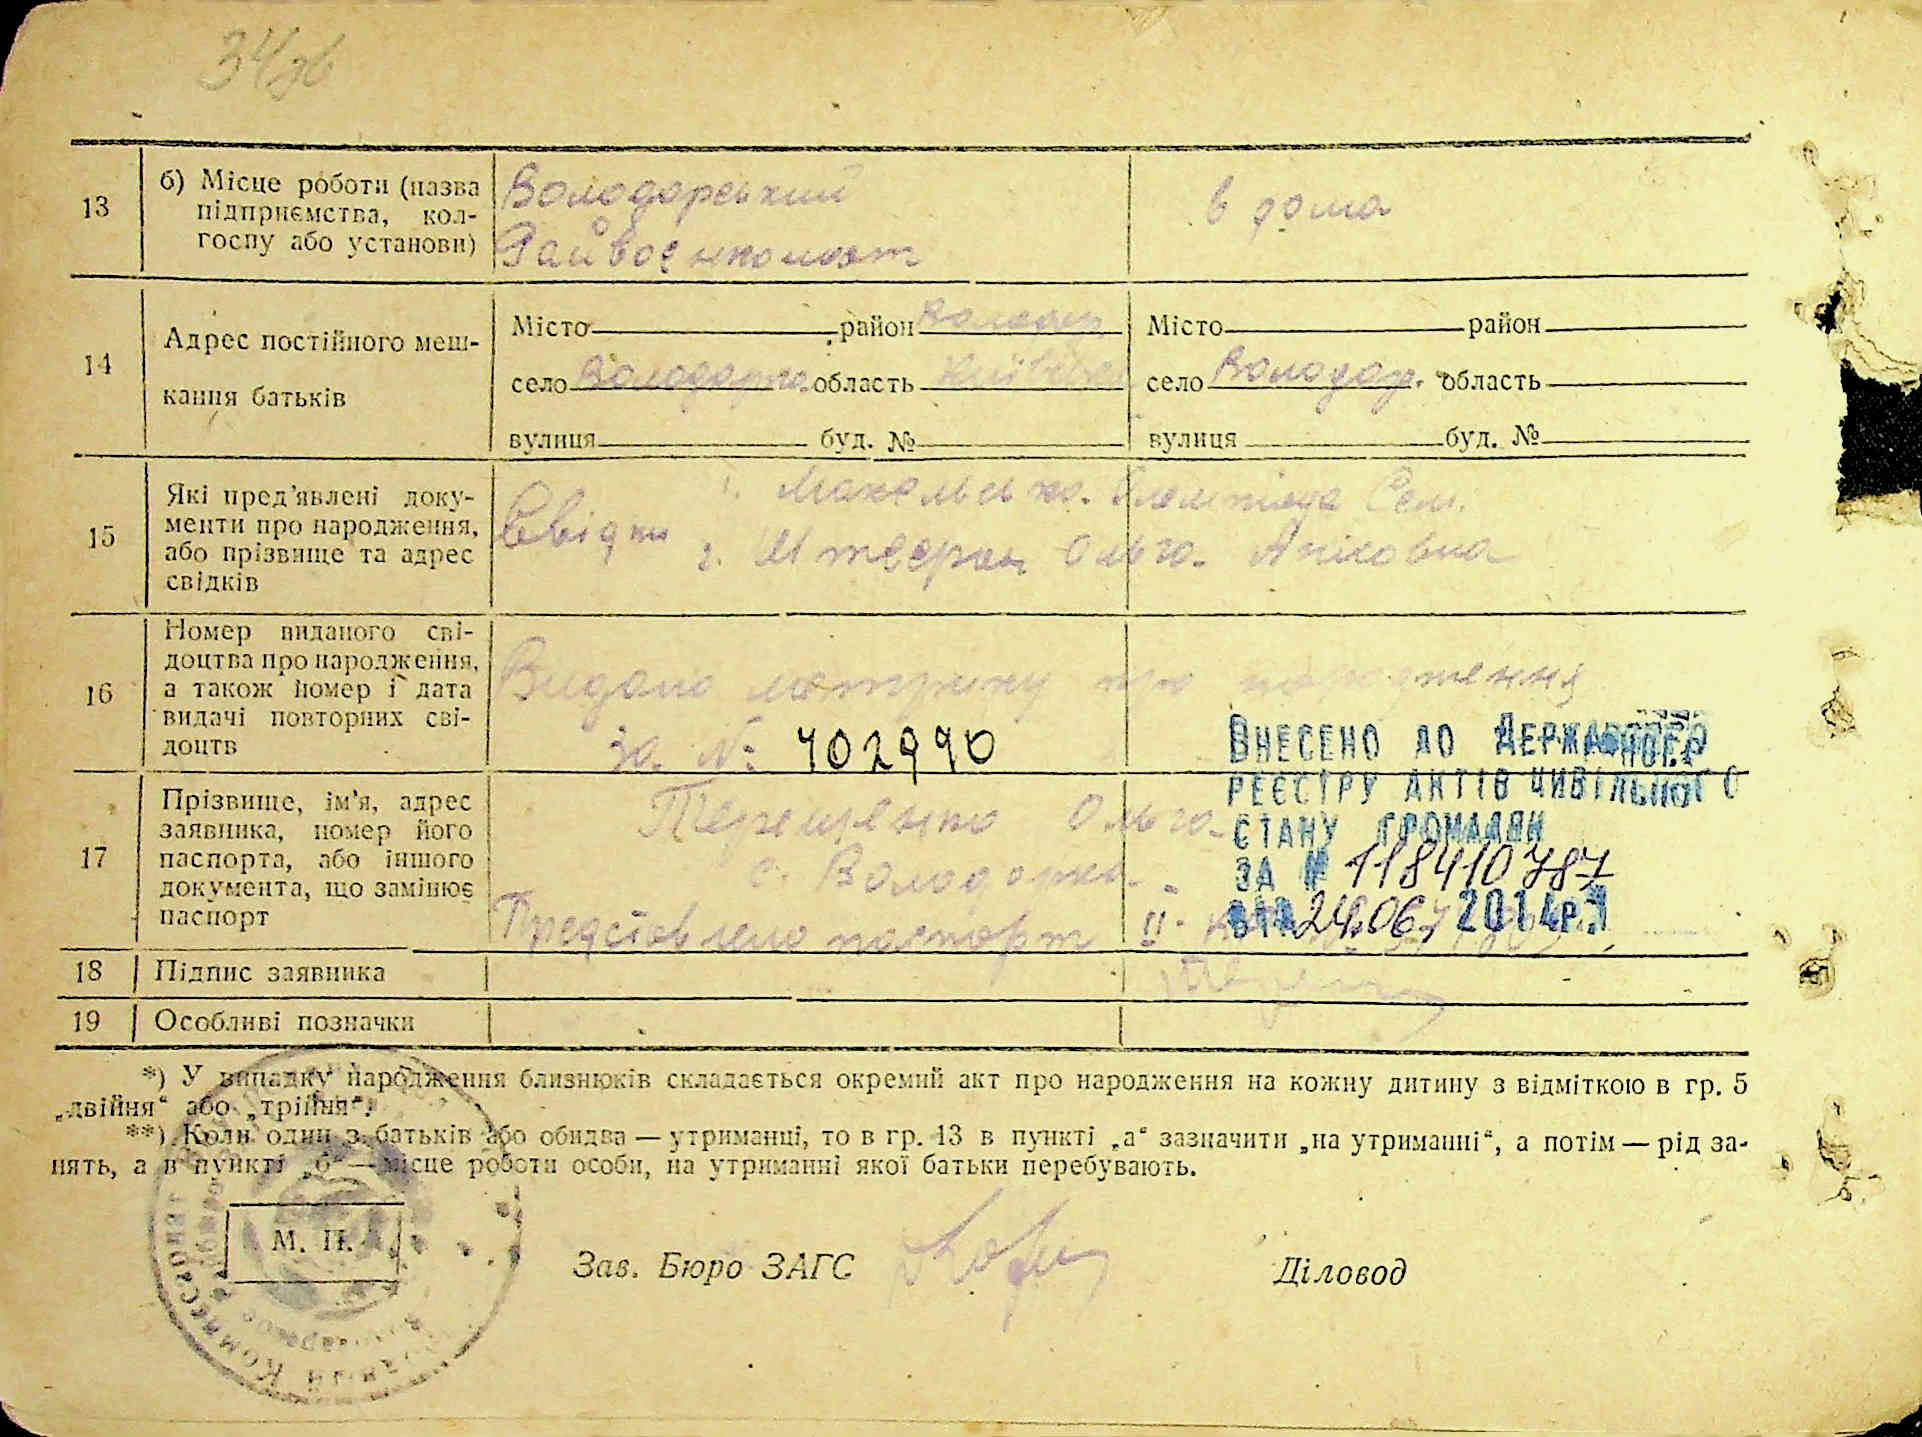 34зв
13
б) Місце роботи (назва
підприємства, кол-
госпу або установи)
Володарський
Райвоєнкомат
в дома
14
Адрес постійного меш-
кання батьків
Місто район Володар
село Володарка область Київська
вулиця буд. №
Місто район
село Володар. область
вулиця буд. №
15
Які пред'явлені доку-
менти про народження,
або прізвище та адрес
свідків
Свідки
1. Сем.
2. Ольга
16
Номер виданого сві-
доцтва про народження,
а також номер і дата
видачі повторних сві-
доцтв
Видано метрику про народження
за №: 702990
17
Прізвище, ім'я, адрес
заявника, номер його
паспорта, або іншого
документа, що замінює
паспорт
Терещенко Ольга
с. Володарка
Представлено паспорт II-
Внесено до Державного
реєстру актів цивільного
стану громадян
за № 118410787
від 24.06. 2014р.
18
Підпис заявника
19
Особливі позначки
*) У випадку народження близнюків складається окремий акт про народження на кожну дитину з відміткою в гр. 5
„двійня“ або „трійня“.
**) Коли один з батьків або обидва — утриманці, то в гр. 13 в пункті „а“ зазначити „на утриманні“, а потім — рід за-
нять, а в пункті „б“ — місце роботи особи, на утриманні якої батьки перебувають.
М. П.
Зав. Бюро ЗАГС
Діловод